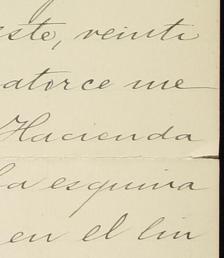 este, veinti
atorce me
Hacienda
la esquina
en el lin